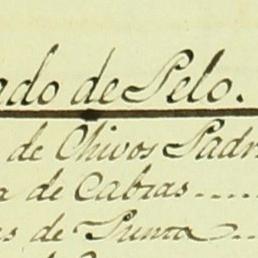 ado de Pelo.
de Chivos Padr
a de Cabras....
s de Prima...